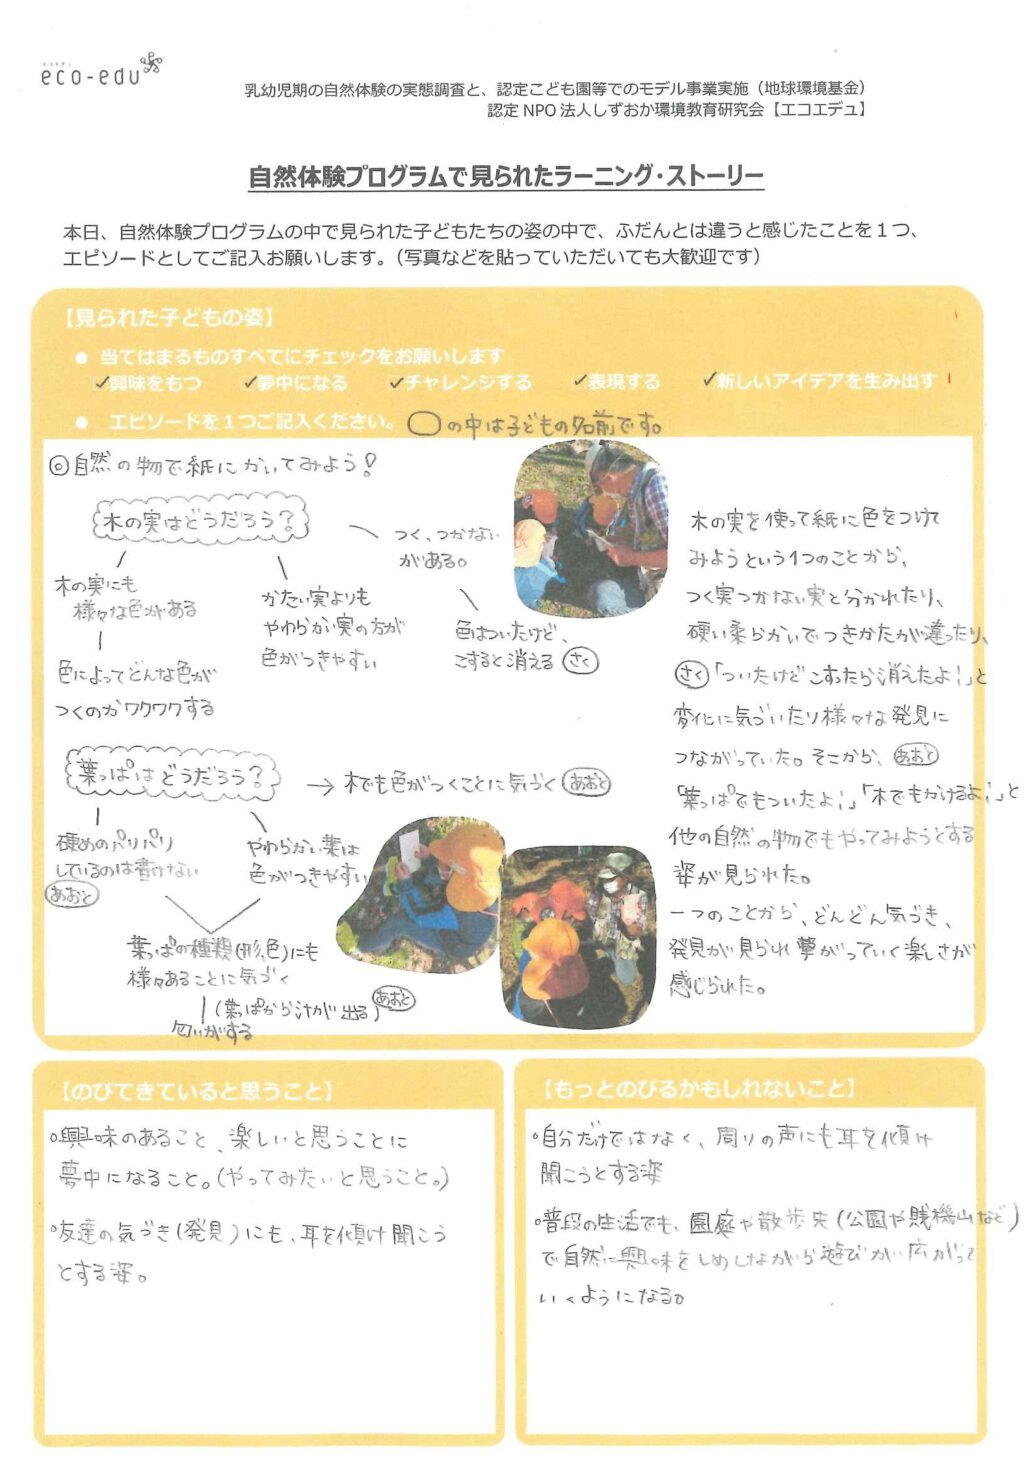 eco-edu
乳幼児期の自然体験の実態調査と、認定こども園等でのモデル事業実施（地球環境基金）
認定 NPO 法人しずおか環境教育研究会【エコエデュ】
自然体験プログラムで見られたラーニング・ストーリー
本日、自然体験プログラムの中で見られた子どもたちの姿の中で、ふだんとは違うと感じたことを１つ、
エピソードとしてご記入お願いします。（写真などを貼っていただいても大歓迎です）
【見られた子どもの姿】
● 当てはまるものすべてにチェックをお願いします
✓興味をもつ ✓夢中になる ✓チャレンジする ✓表現する ✓新しいアイデアを生み出す
● エピソードを１つご記入ください。 ○の中は子どもの名前です。
◎自然の物で紙にかいてみよう！
木の実はどうだろう？
つく、つかない
がある。
木の実にも
様々な色がある
かたい実よりも
やわらかい実の方が
色がつきやすい
色はついたけど、
こすると消える さく
色によってどんな色が
つくのかワクワクする
葉っぱはどうだろう？
→ 木でも色がつくことに気づく あおと
硬めのパリパリ
しているのは書けない
あおと
やわらかい葉は
色がつきやすい
葉っぱの種類(形、色)にも
様々あることに気づく
(葉っぱから汁が出る) あおと
匂いがする
木の実を使って紙に色をつけて
みようという1つのことから、
つく実つかない実と分かれたり、
硬い柔らかいでつきかたが違ったり、
さく「ついたけどこすったら消えたよ！」と
変化に気づいたり様々な発見に
つながっていた。そこから、あおと
「葉っぱでもついたよ！」「木でもかけるよ！」と
他の自然の物でもやってみようとする
姿が見られた。
一つのことから、どんどん気づき、
発見が見られ夢がっていく楽しさが
感じられた。
【のびてきていると思うこと】
○興味のあること、楽しいと思うことに
夢中になること。(やってみたいと思うこと。)
○友達の気づき(発見)にも、耳を傾け聞こう
とする姿。
【もっとのびるかもしれないこと】
○自分だけではなく、周りの声にも耳を傾け
聞こうとする姿
○普段の生活でも、園庭や散歩先(公園や賎機山など)
で自然に興味をしめしながら遊びが広がって
いくようになる。